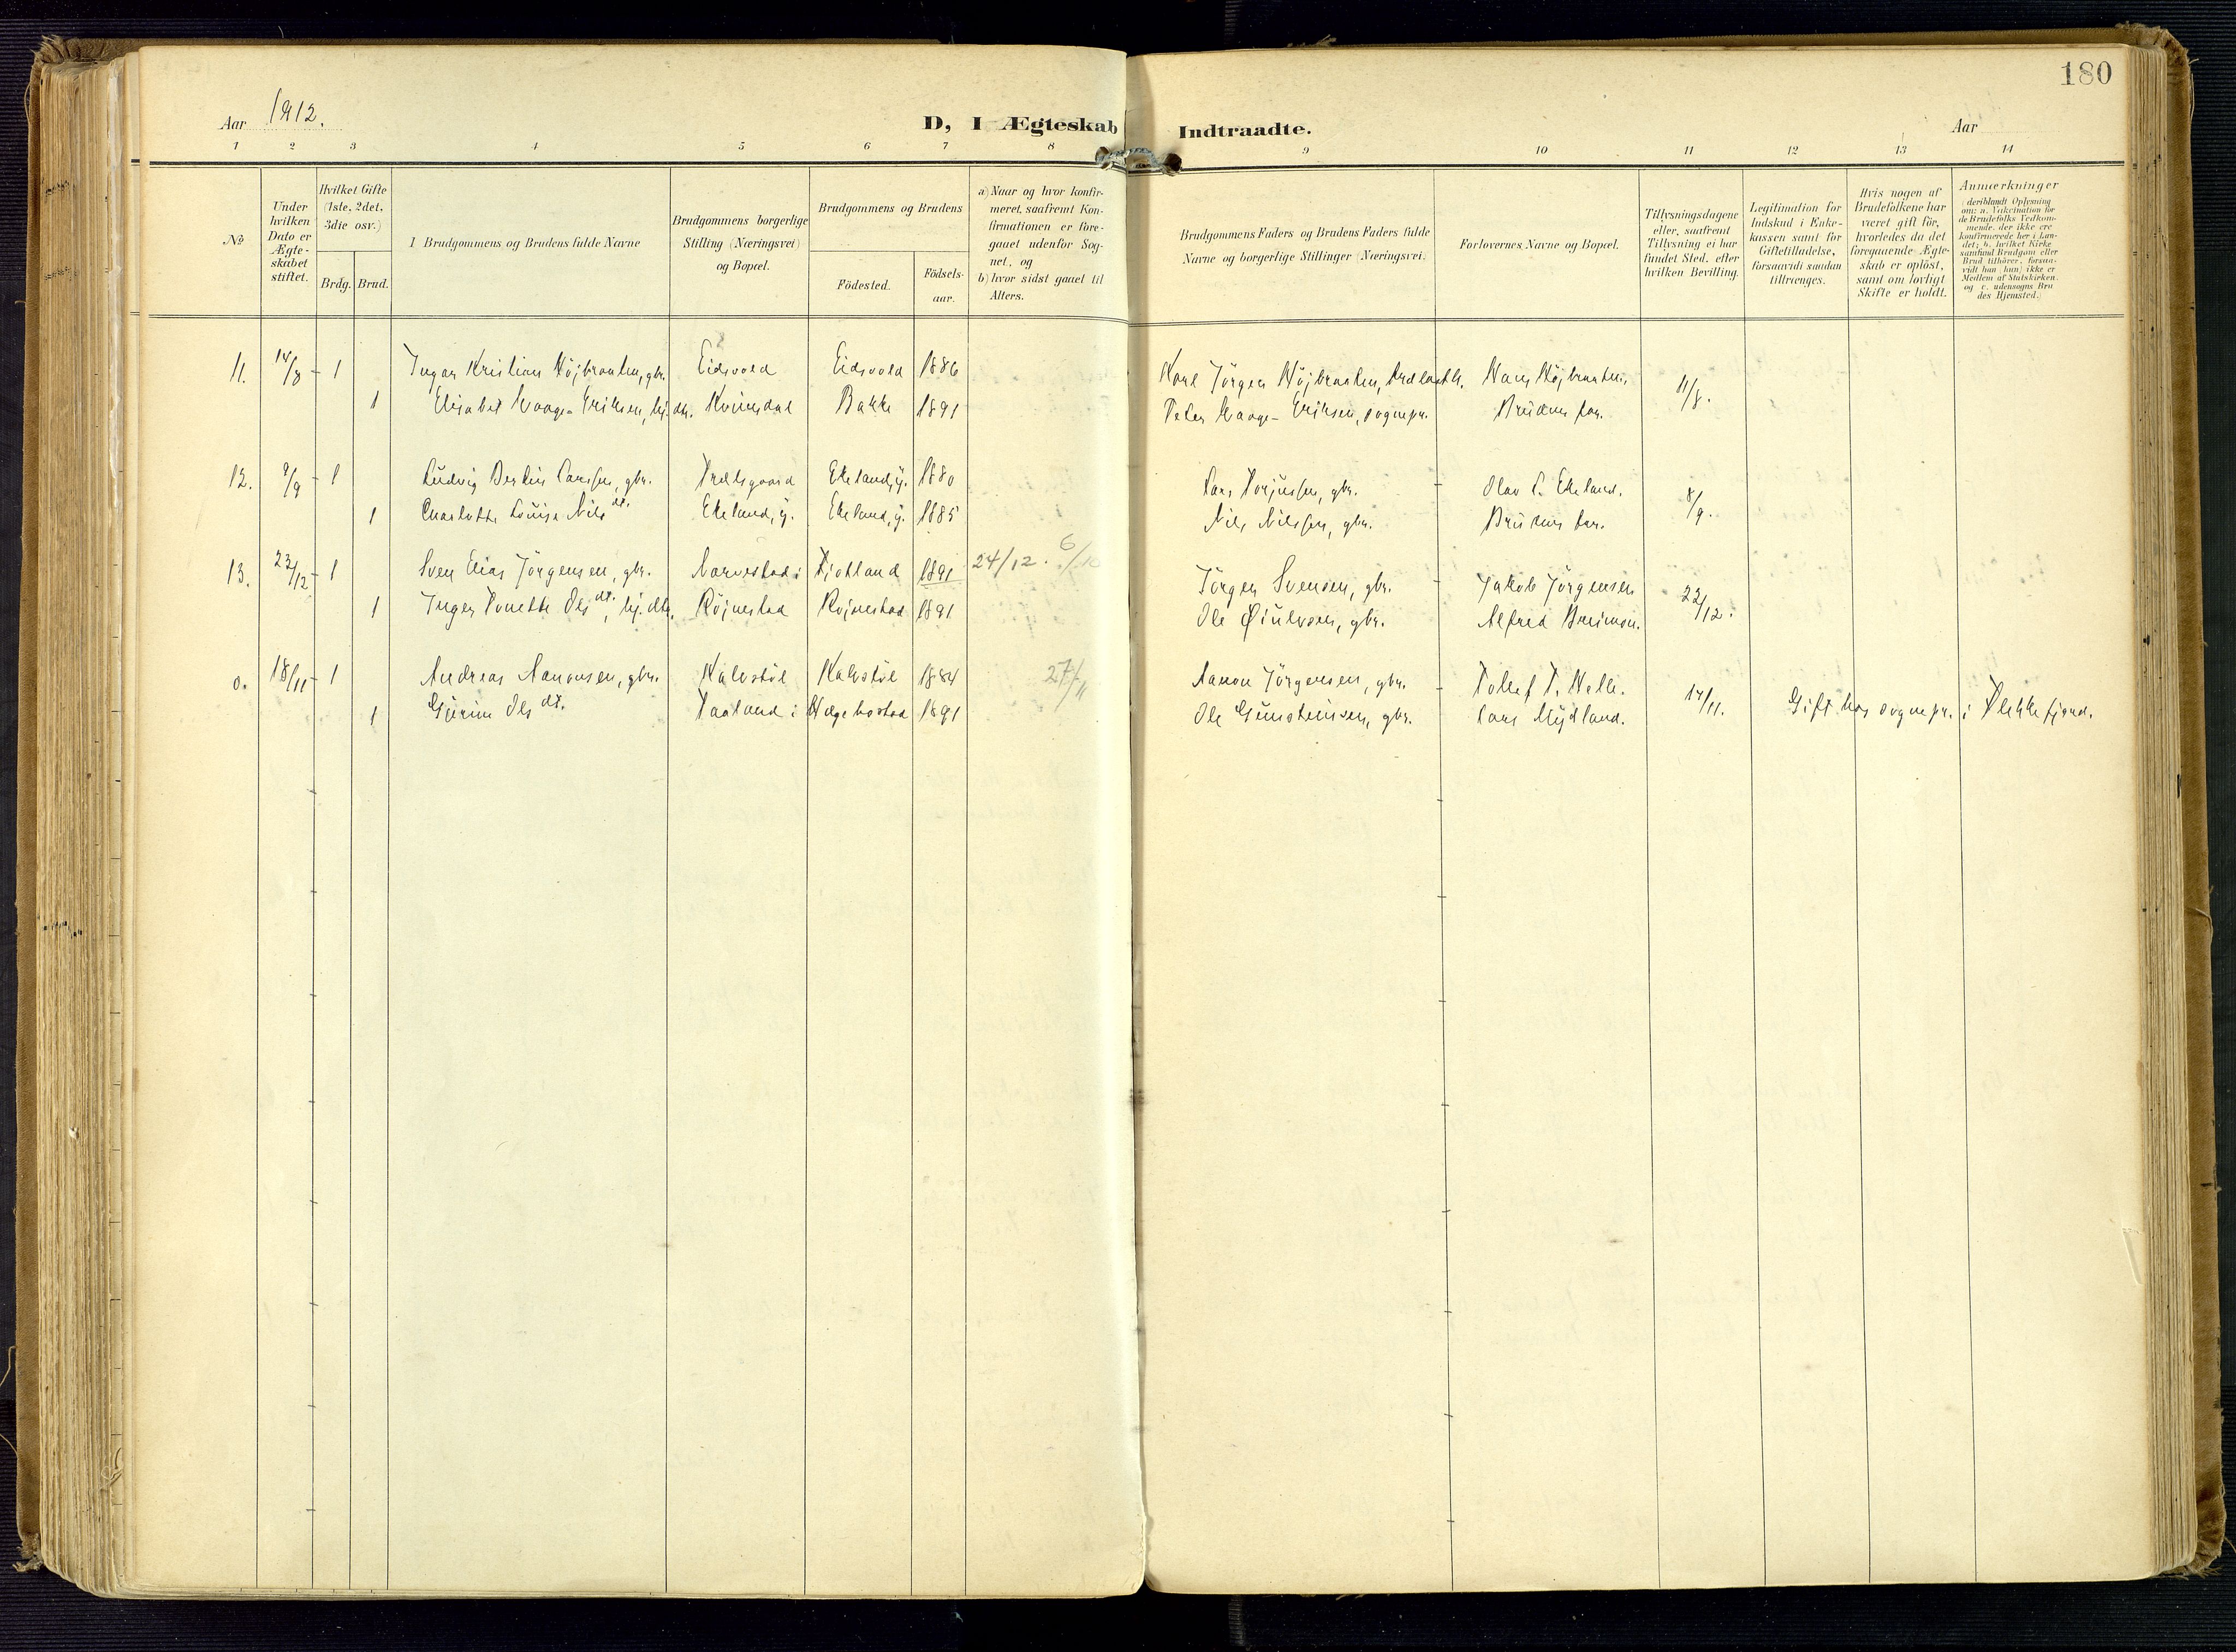 180
Aar 1912.
D, I Ægteskab Indtraadte.
Aar
1 2 3 4 5 6 7 8 9 10 11 12 13 14
No
Under hvilken Dato er Ægte-skabet stiftet.
Hvilket Gifte (1ste, 2det, 3die osv.)
Brdg. Brud.
Brudgommens og Brudens fulde Navne
Brudgommens borgerlige Stilling (Næringsvei) og Bopæl.
Brudgommens og Brudens
Födested.
Födsels-aar.
a) Naar og hvor konfir-meret, saafremt Kon-firmationen er fore-gaaet udenfor Sog-net, og
b) hvor sidst gaaet til Alters.
Brudgommens Faders og Brudens Faders fulde Navne og borgerlige Stillinger (Næringsvei).
Forlovernes Navne og Bopæl.
Tillysningsdagene eller, saafremt Tillysning ei har fundet Sted, efter hvilken Bevilling.
Legitimation for Indskud i Enke-kassen samt for Giftetilladelse, forsaavidt saadan tiltrænges.
Hvis nogen af Brudefolkene har været gift för, hvorledes da det foregaaende Ægte-skab er oplöst, samt om lovligt Skifte er holdt.
Anmærkninger (deriblandt Oplysning om: a. Vakcination for de Brudefolks Vedkom-mende, der ikke ere konfirmerede her i Lan-det; b. hvilket Kirke samfund Brudgom eller Brud tilhörer, forsaa-vidt han (hun) ikke er Medlem af Statskirken, og c. udensogns Bru des Hjemsted.)
11. 14/8 1 Ingar Kristian Höjbraaten, gbr. Eidsvold Eidsvold 1886 Karl Jörgen Höjbraaten, Hans Höjbraaten, 11/8.
1 Elisabet Waage-Eriksen, hj. dtr. Kvinesdal Bakke 1891 Peter Waage-Eriksen, sognepr. Brudens far.
12. 9/9 1 Ludvig Berlin Larssen, gbr. Træltgaard Ekeland, y. 1880 Lars Torjussen, gbr. Olav L. Ekeland. 8/9.
1 Charlotte Louise Nilsdt. Ekeland, y. Ekeland, y. 1885 Nils Nilssen, gbr. Brudens far.
13. 22/12 1 Sven Elias Jörgensen, gbr. Narvestad i Fjotland 1891 24/12. 6/ Jörgen Svensen, gbr. Jakob Jörgensen 22/12.
1 Inger Tonette Olsdt., hj. dtr. Röjnestad Röjnestad 1891 Ole Øiulvsen, gbr. Alfred Breimon.
0. 18/11 1 Andreas Aanonsen, gbr. Kalvstöl Kalvstöl 1884 27/11 Aanon Jörgensen, gbr. Tollef T. Helle. 17/11. Gift hos sognepr. i Flekkefjord.
1 Gjurine Olsdt. Taaland i Hægebostad 1891 Ole Gunsteinsen, gbr. Lars Mydland.